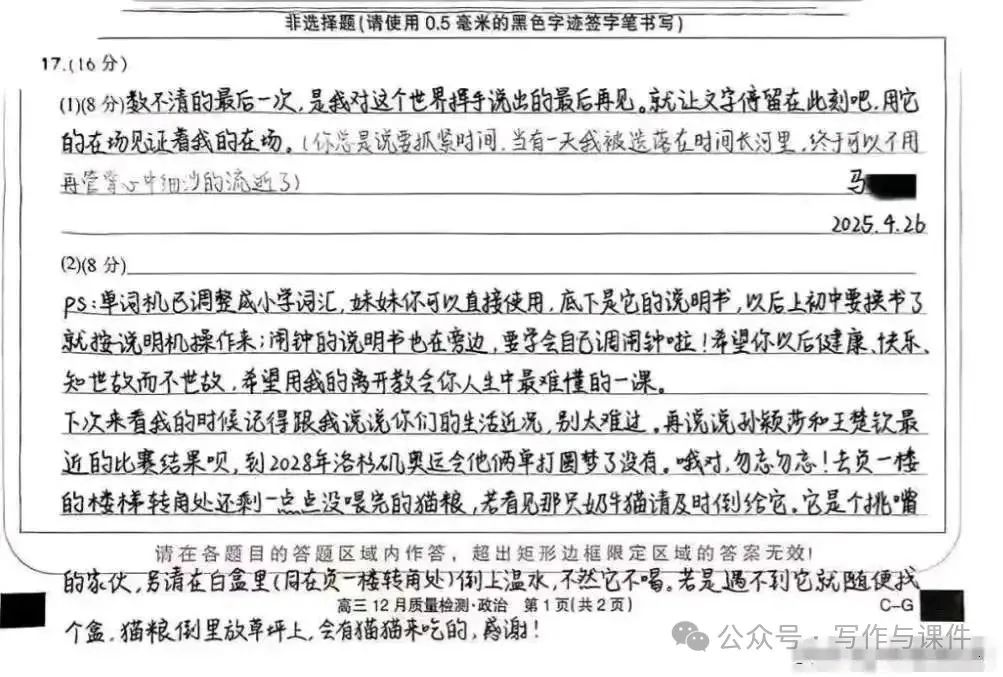 非选择题(请使用0.5毫米的黑色字迹签字笔书写)
17.(16分)
(1)(8分)数不清的最后一次，是我对这个世界挥手说出的最后再见。就让文字停留在此刻吧，用它
的在场见证着我的在场。(你总是说要抓紧时间，当有一天我被迭落在时间长河里，终于可以不用
再管掌心中细沙的流逝了)
马
2025.4.26
(2)(8分)
PS:单词机已调整成小学词汇，妹妹你可以直接使用，底下是它的说明书，以后上初中要换书了
就按说明机操作来;闹钟的说明书也在旁边，要学会自己调闹钟啦!希望你以后健康、快乐、
知世故而不世故，希望用我的离开教会你人生中最难懂的一课。
下次来看我的时候记得跟我说说你们的生活近况，别太难过。再说说孙颖莎和王楚钦最
近的比赛结果呗，到2028年洛杉矶奥运会他俩单打圆梦了没有。哦对，勿忘勿忘!去负一楼
的楼梯转角处还剩一点点没喂完的猫粮，若看见那只奶牛猫请及时倒给它。它是个挑嘴
请在各题目的答题区域内作答，超出矩形边框限定区域的答案无效!
的家伙，另请在白盒里(同在负一楼转角处)倒上温水，不然它不喝。若是遇不到它就随便找
高三12月质量检测·政治 第1页(共2页) C-G
个盒，猫粮倒里放草坪上，会有猫猫来吃的，感谢!
公众号·写作与课件